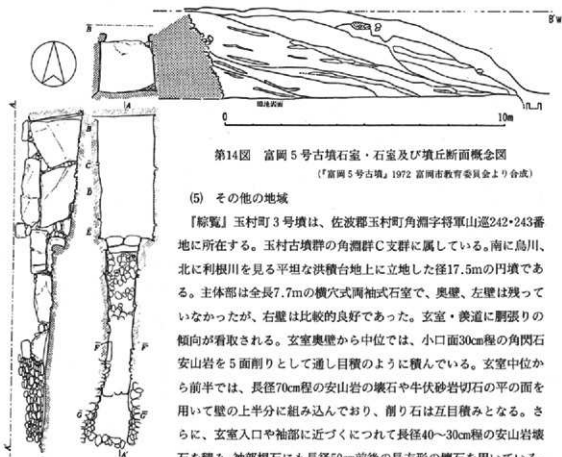 B
B'w
A
旧地表面
0 10m
第14図 富岡5号古墳石室・石室及び墳丘断面概念図
(『富岡5号古墳』1972 富岡市教育委員会より合成)
A
B
C
D
E
F F'
G G'
A'
(5) その他の地域
『綜覧』玉村町3号墳は、佐波郡玉村町角淵字将軍山巡242・243番
地に所在する。玉村古墳群の角淵群C支群に属している。南に烏川、
北に利根川を見る平坦な洪積台地上に立地した径17.5mの円墳であ
る。主体部は全長7.7mの横穴式両袖式石室で、奥壁、左壁は残って
いなかったが、右壁は比較的良好であった。玄室・羨道に胴張りの
傾向が看取される。玄室奥壁から中位では、小口面30cm程の角閃石
安山岩を5面削りとして通し目積のように積んでいる。玄室中位か
ら前半では、長径70cm程の安山岩の壊石や牛伏砂岩切石の平の面を
用いて壁の上半分に組み込んでおり、削り石は互目積みとなる。さ
らに、玄室入口や袖部に近づくにつれて長径40〜30cm程の安山岩壊